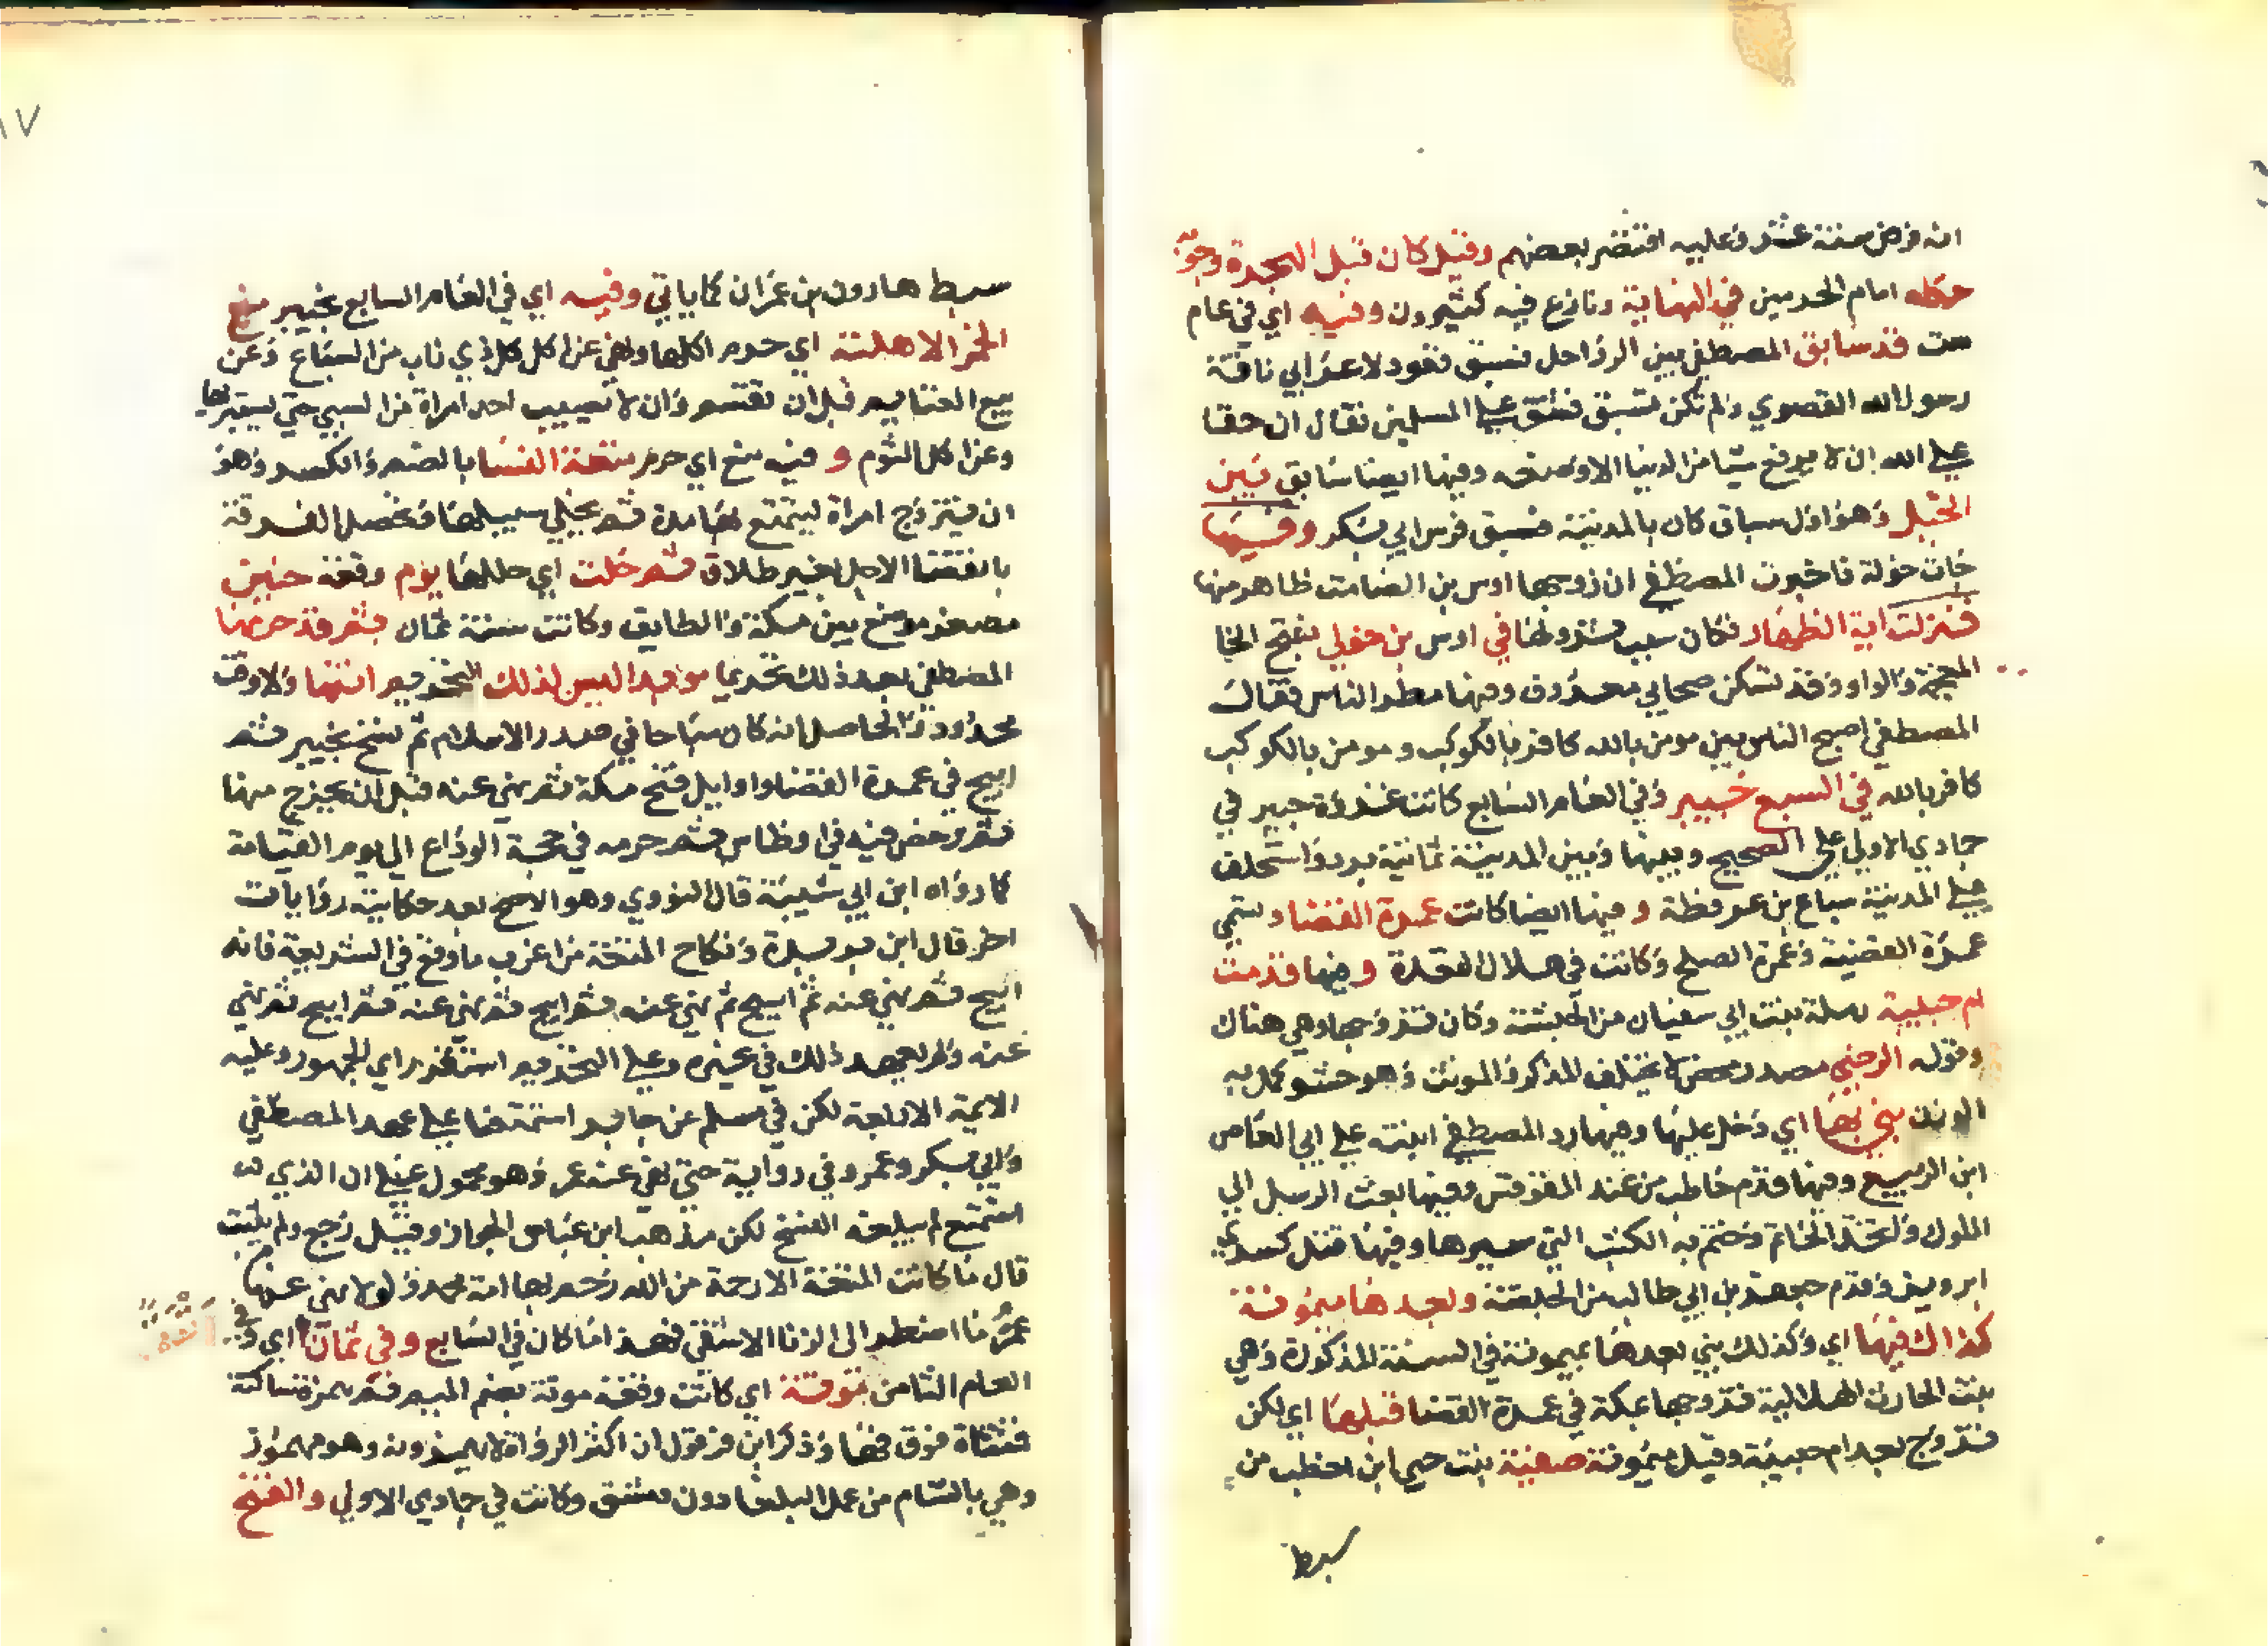 انه فرض سنة عشر وعليه اقتصر بعضهم وقيل كان قبل الهجرة وجوّ
حكاه امام الحرمين في النهاية ونازع فيه كثيرون وفيه اي في عام
ست قد سابق المصطفي بين الرواحل فسبق قعود لاعرابي ناقة
رسول الله القصوي ولم تكن تسبق فشق علي المسلمين فقال ان حقا
علي الله ان لا يرفع شيا من الدنيا الا وضعه وفيها ايضا سابق بين
الخيل وهو اول سباق كان بالمدينة فسبق فرس ابي بكر وفيها
جات خولة فاخبرت المصطفي ان زوجها اوس بن الصامت ظاهر منها
فنزلت اية الظهار فكان سبب نزولها في اوس بن خولي بفتح الخا
المعجمة والواو وقد تسكن صحابي معروف وفيها مطر الناس فقال
المصطفي اصبح الناس بين مومن بالله كافر بالكوكب ومومن بالكوكب
كافر بالله في السبع خيبر وفي العام السابع كانت غزوة خيبر في
جمادي الاولي علي الصحيح وبينها وبين المدينة ثمانية برد واستخلف
علي المدينة سباع بن عرفطة وفيها ايضا كانت عمرة القضا وتسمي
عمرة القضية وعمرة الصلح وكانت في هلال القعدة وفيها قدمت
ام حبيبة رملة بنت ابي سفيان من الحبشة وكان تزوجها وهي هناك
وقوله الرضي مصدر محض لا يختلف المذكر والمونث وهو حشو كمل به
الوزن بني بها اي دخل عليها وفيها رد المصطفي ابنته علي ابي العاص
ابن الربيع وفيها قدم حاطب من عند المقوقس وفيها بعث الرسل الي
الملوك واتخذ الخاتم وختم به الكتب التي سيرها وفيها قتل كسري
ابرويز وقدم جعفر بن ابي طالب من الحبشة وبعدها ميمونة
كذاك فيها اي وكذلك بني بعدها بميمونة في السنة المذكورة وهي
بنت الحارث الهلالية فتزوجها بمكة في عمرة القضا قبلها اي لكن
تزوج بعد ام حبيبة وقيل ميمونة صفية بنت حيي ابن اخطب من
سبط
سبط هارون بن عمران كما ياتي وفيه اي في العام السابع بخيبر منع
الحمر الاهلية اي حرم اكلها ونهي عن اكل كل ذي ناب من السباع وعن
بيع الغنايم قبل ان تقسم وان لا تصيب احد امراة من السبي حتي يستبريها
وعن اكل الثوم وفيه منع اي حرم متعة النسا بالضم والكسر وهو
ان يتزوج امراة ليتمتع بها مدة ثم يخلي سبيلها فتحصل الفرقة
بانقضا الاجل بغير طلاق ثم حلت اي حللها يوم وقعة حنين
مصغر موضع بين مكة والطايف وكانت سنة ثمان ثم قد حرمها
المصطفي بعد ذلك تحريما موبدا ليس لذلك التحريم انتها ولا وقت
محدود والحاصل انه كان مباحا في صدر الاسلام ثم نسخ بخيبر ثم
ابيح في عمرة القضا واوايل فتح مكة ثم نهي عنه قبل ان يخرج منها
ثم رخص فيه في اوطاس ثم حرمه في حجة الوداع الي يوم القيامة
كما رواه ابن ابي شيبة قال النووي وهو الاصح بعد حكاية روايات
اخر قال ابن بريدة ونكاح المتعة من اغرب ما وقع في الشريعة فانه
ابيح ثم نهي عنه ثم ابيح ثم نهي عنه ثم ابيح ثم نهي عنه ثم ابيح ثم نهي
عنه ولم يعهد ذلك في غيره وعلي التحريم استقر راي الجمهور وعليه
الايمة الاربعة لكن في مسلم عن جابر استمتعنا علي عهد المصطفي
وابي بكر وعمر وفي رواية حتي نهي عنه عمر وهو محمول علي ان الذي
استمتع لم يبلغه النسخ لكن مذهب ابن عباس الجواز وقيل رجع ولم يثبت
قال ما كانت المتعة الا رحمة من الله رحم بها امة محمد ولولا نهي عنها
عمر ما اضطر الي الزنا الا شقي فهذا ما كان في السابع وفي ثمان اي وفي
العام الثامن بموتة اي كانت وقعة موتة بضم الميم ثم همزة ساكنة
فمثناة فوق فها وذكر ابن قرقول ان اكثر الرواة لا يهمزونه وهو مهموز
وهي بالشام من عمل البلقا دون دمشق وكانت في جمادي الاولي والفتح